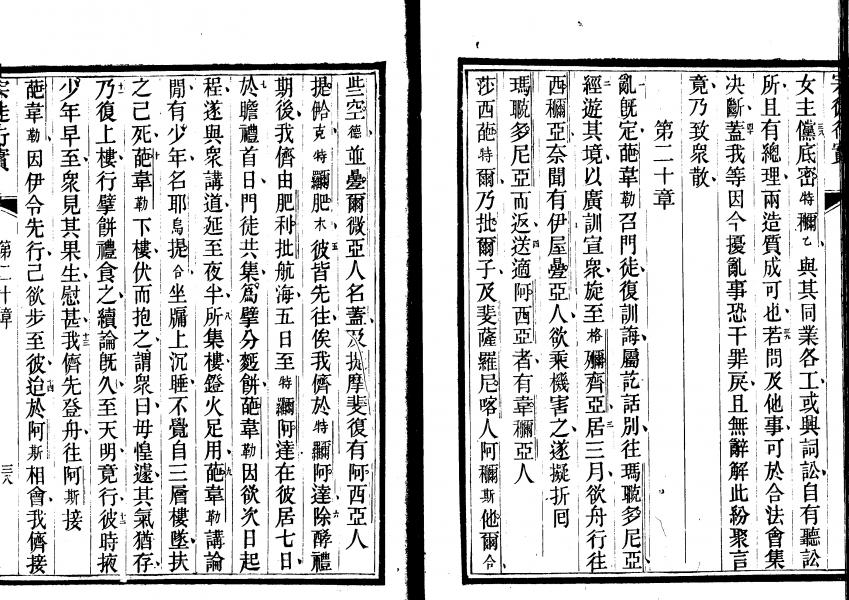 宗徒行實
女主儻底密特𥣡乙與其同業各工或與詞訟自有聽訟
所且有總理兩造質成可也若問及他事可於合法會集
決斷蓋我等因今擾亂事恐干罪戾且無辭解此紛聚言
竟乃致衆散
第二十章
亂旣定葩韋勒召門徒復訓誨屬訖話別往瑪聭多尼亞
經遊其境以廣訓宣衆旋至格𥣡齊亞居三月欲舟行往
西𥣡亞奈聞有伊屋疊亞人欲乘機害之遂擬折囘
瑪聭多尼亞而返送適阿西亞者有韋𥣡亞人
莎西葩特爾乃批爾子及斐薩羅尼喀人阿𥣡斯他爾合
些空德並疊爾微亞人名蓋及提摩斐復有阿西亞人
提哈克特𥣡肥木彼皆先往俟我儕於特𥣡阿達除酵禮
期後我儕由肥利批航海五日至特𥣡阿達在彼居七日
於瞻禮首日門徒共集爲擘分麪餅葩韋勒因欲次日起
程遂與衆講道延至夜半所集樓鐙火足用葩韋勒講論
閒有少年名耶烏提合坐牖上沉睡不覺自三層樓墜扶
之已死葩韋勒下樓伏而抱之謂衆曰毋惶遽其氣猶存
乃復上樓行擘餅禮食之續論旣久至天明竟行彼時掖
少年早至衆見其果生慰甚我儕先登舟往阿斯接
葩韋勒因伊令先行己欲步至彼迨於阿斯相會我儕接
宗徒行實
第二十章
三八